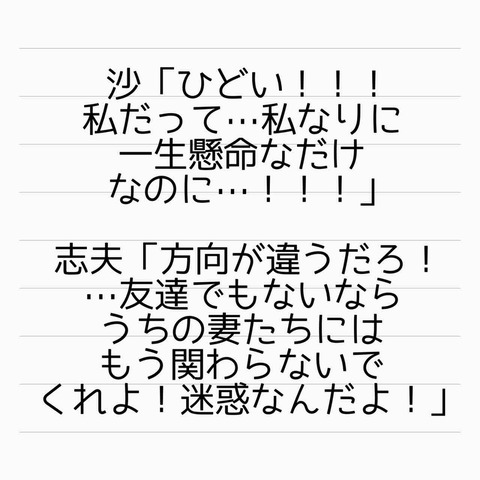 沙「ひどい！！！
私だって…私なりに
一生懸命なだけ
なのに…！！！」
志夫「方向が違うだろ！
…友達でもないなら
うちの妻たちには
もう関わらないで
くれよ！迷惑なんだよ！」